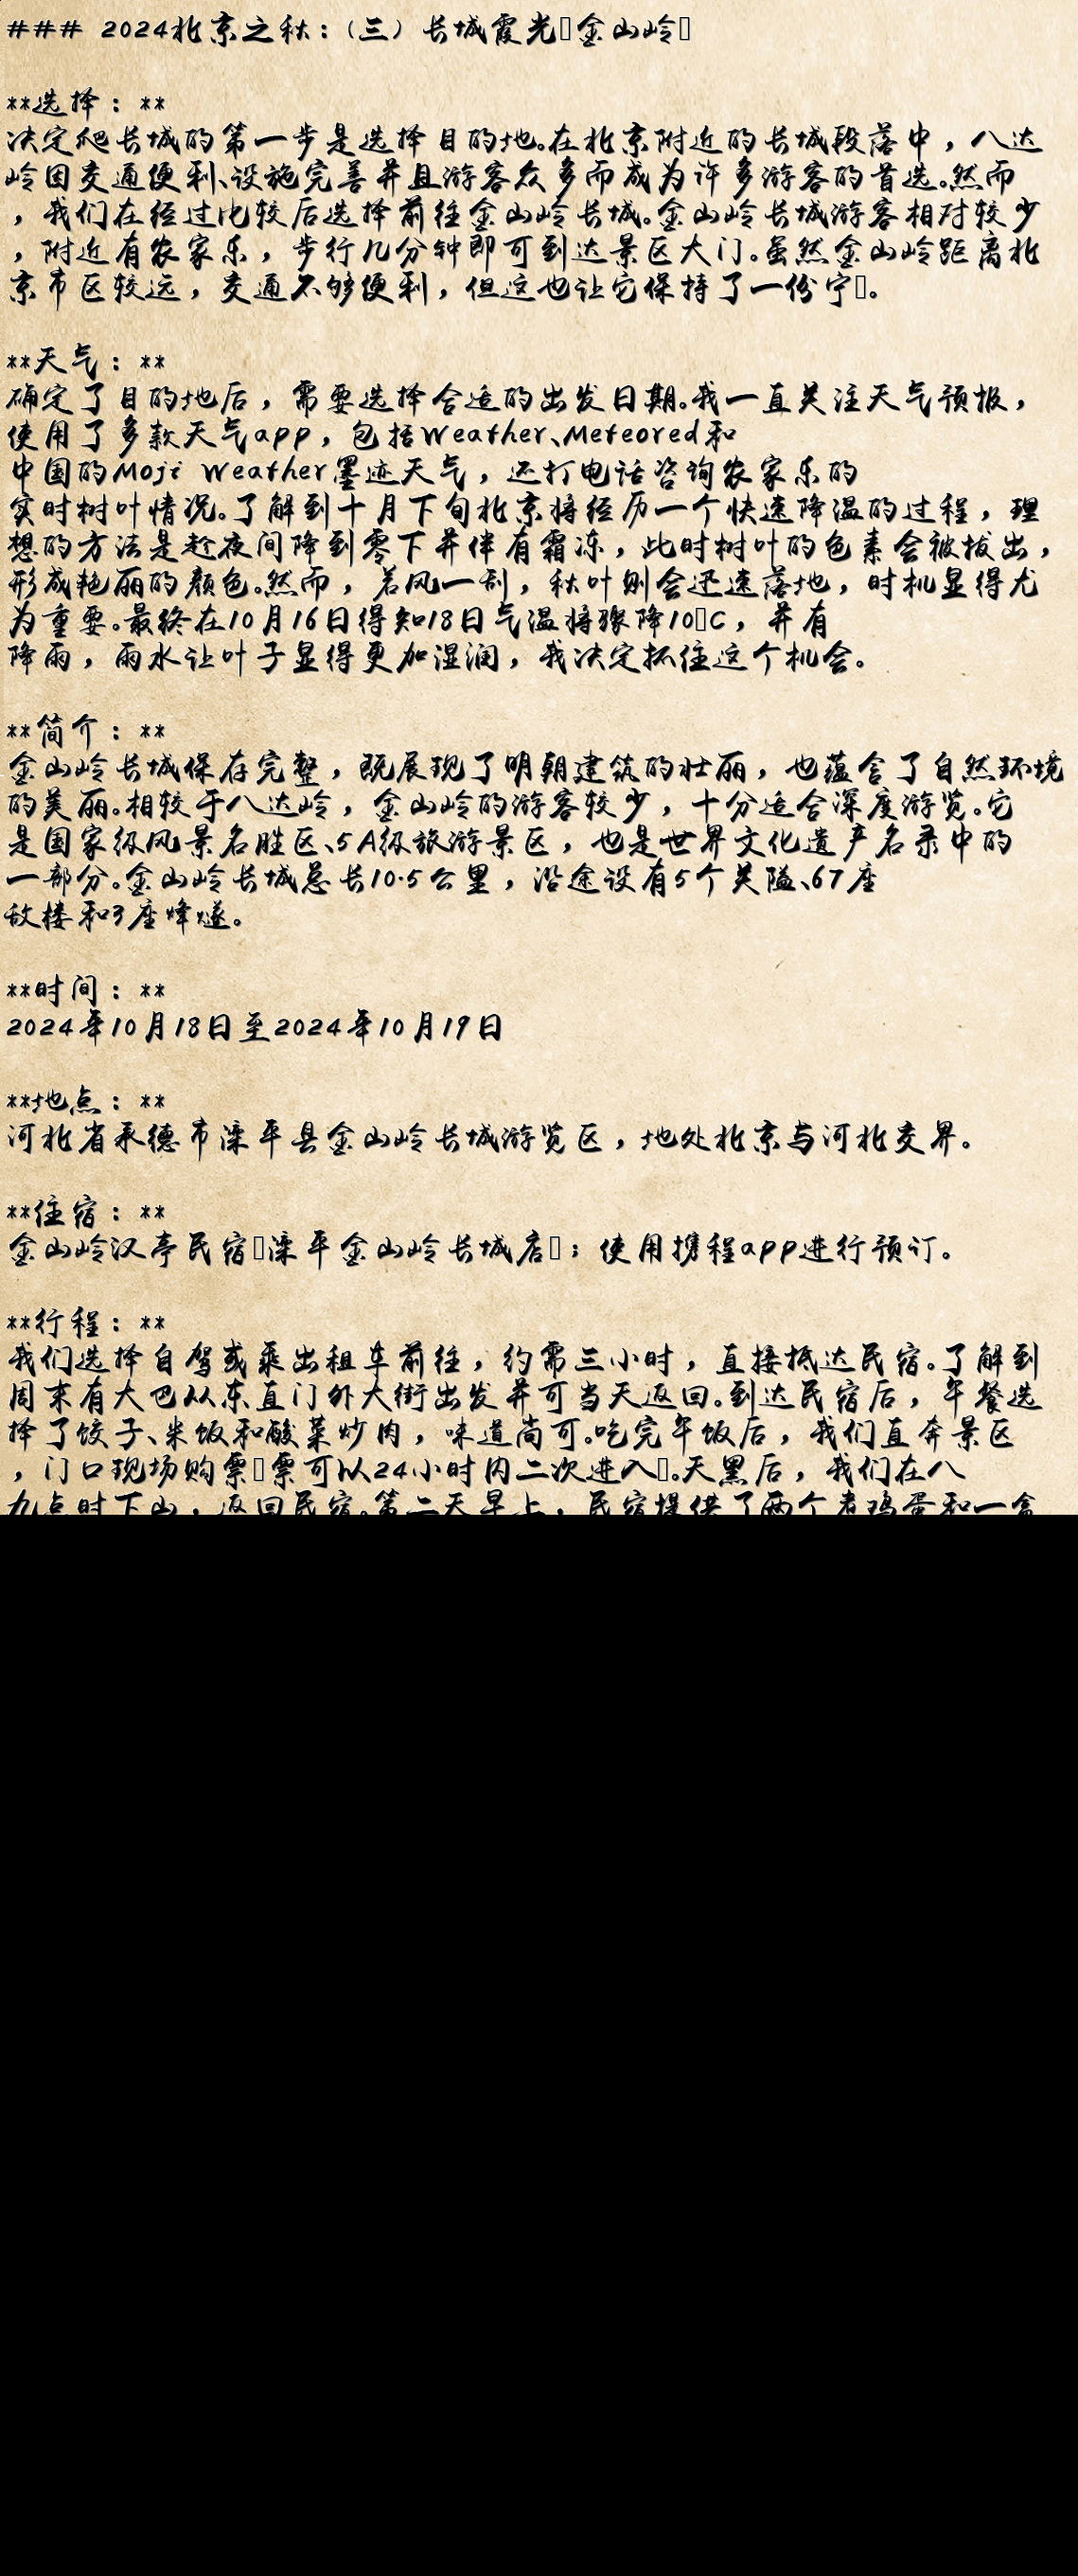 ### 2024北京之秋：（三）长城霞光▯金山岭▯
**选择：**
决定爬长城的第一步是选择目的地。在北京附近的长城段落中，八达
岭因交通便利、设施完善并且游客众多而成为许多游客的首选。然而
，我们在经过比较后选择前往金山岭长城。金山岭长城游客相对较少
，附近有农家乐，步行几分钟即可到达景区大门。虽然金山岭距离北
京市区较远，交通不够便利，但这也让它保持了一份宁▯。
**天气：**
确定了目的地后，需要选择合适的出发日期。我一直关注天气预报，
使用了多款天气app，包括Weather、Meteored和
中国的Moji Weather墨迹天气，还打电话咨询农家乐的
实时树叶情况。了解到十月下旬北京将经历一个快速降温的过程，理
想的方法是趁夜间降到零下并伴有霜冻，此时树叶的色素会被拔出，
形成艳丽的颜色。然而，若风一刮，秋叶则会迅速落地，时机显得尤
为重要。最终在10月16日得知18日气温将骤降10▯C，并有
降雨，雨水让叶子显得更加湿润，我决定抓住这个机会。
**简介：**
金山岭长城保存完整，既展现了明朝建筑的壮丽，也蕴含了自然环境
的美丽。相较于八达岭，金山岭的游客较少，十分适合深度游览。它
是国家级风景名胜区、5A级旅游景区，也是世界文化遗产名录中的
一部分。金山岭长城总长10.5公里，沿途设有5个关隘、67座
敌楼和3座烽燧。
**时间：**
2024年10月18日至2024年10月19日
**地点：**
河北省承德市滦平县金山岭长城游览区，地处北京与河北交界。
**住宿：**
金山岭汉亭民宿▯滦平金山岭长城店▯；使用携程app进行预订。
**行程：**
我们选择自驾或乘出租车前往，约需三小时，直接抵达民宿。了解到
周末有大巴从东直门外大街出发并可当天返回。到达民宿后，午餐选
择了饺子、米饭和酸菜炒肉，味道尚可。吃完午饭后，我们直奔景区
，门口现场购票▯票可以24小时内二次进入▯。天黑后，我们在八
九点时下山，返回民宿。第二天早上，民宿提供了两个煮鸡蛋和一盒